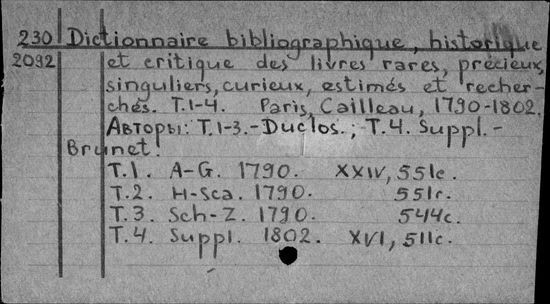 230 Dictionnaire bibliographique, historique
2092 et critique des livres rares, précieux,
singuliers, curieux, estimés et recher-
chés. T.1-4. Paris, Cailleau, 1790-1802.
Авторы: T.1-3.-Duclos.; T.4. Suppl.-
Brunet.
T.1. A-G. 1790. XXIV, 551c.
T.2. H-Sca. 1790. 551c.
T.3. Sch-Z. 1790. 544c.
T.4. Suppl. 1802. XVI, 511c.